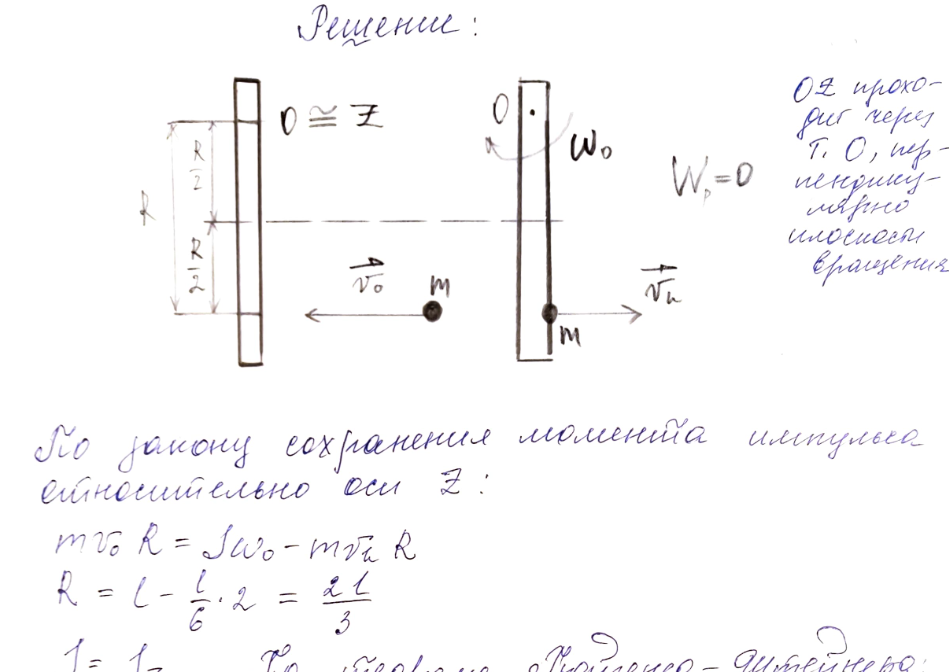 Решение:
O ≅ Z
O
ω₀
W_p = 0
OZ прохо-
дит через
т. O, пер-
пендику-
лярно
плоскости
вращения
R
R/2
R/2
v₀
m
m
vₖ
По закону сохранения момента импульса
относительно оси Z:
mv₀R = Jω₀ - mvₖR
R = l - l/6 · 2 = 2l/3